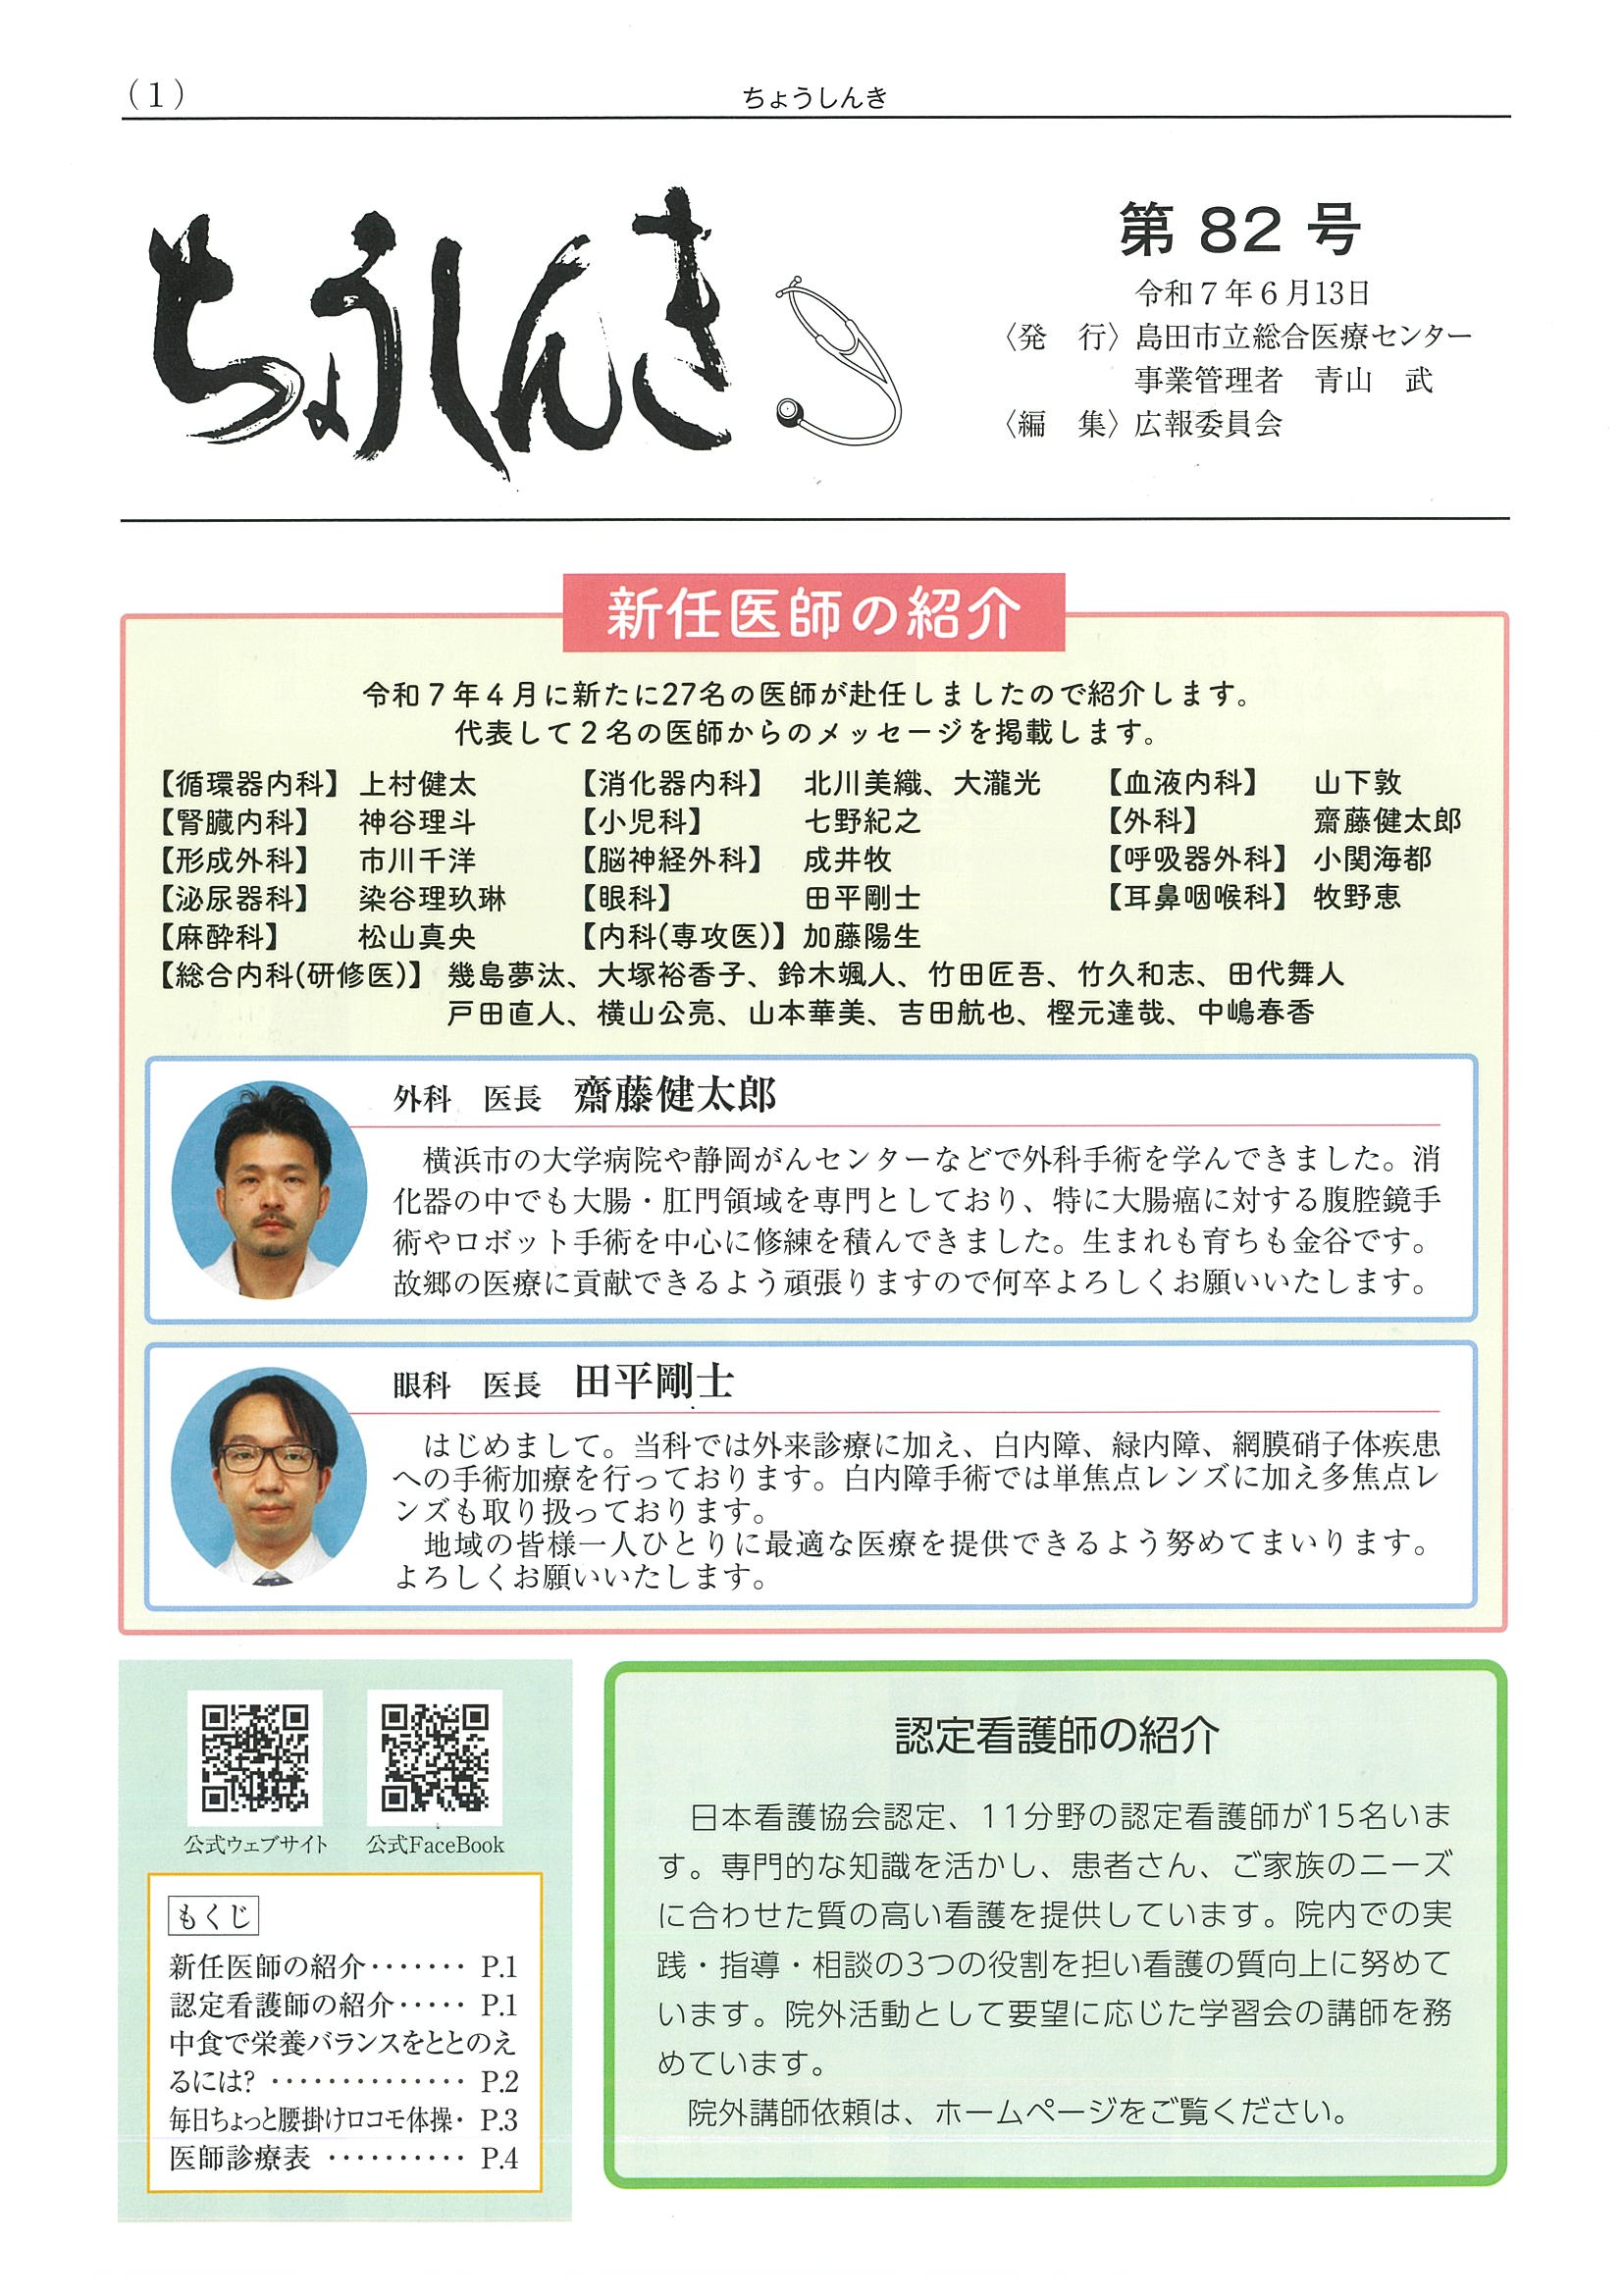 （1）
ちょうしんき
ちょうしんき
第 82 号
令和７年６月13日
〈発　行〉島田市立総合医療センター
事業管理者　青山　武
〈編　集〉広報委員会
新任医師の紹介
令和７年４月に新たに27名の医師が赴任しましたので紹介します。
代表して２名の医師からのメッセージを掲載します。
【循環器内科】 上村健太　【消化器内科】 北川美織、大瀧光　【血液内科】 山下敦
【腎臓内科】 神谷理斗　【小児科】 七野紀之　【外科】 齋藤健太郎
【形成外科】 市川千洋　【脳神経外科】 成井牧　【呼吸器外科】 小関海都
【泌尿器科】 染谷理玖琳　【眼科】 田平剛士　【耳鼻咽喉科】 牧野恵
【麻酔科】 松山真央　【内科(専攻医)】 加藤陽生
【総合内科(研修医)】 幾島夢汰、大塚裕香子、鈴木颯人、竹田匠吾、竹久和志、田代舞人
戸田直人、横山公亮、山本華美、吉田航也、樫元達哉、中嶋春香
外科　医長　齋藤健太郎
　横浜市の大学病院や静岡がんセンターなどで外科手術を学んできました。消
化器の中でも大腸・肛門領域を専門としており、特に大腸癌に対する腹腔鏡手
術やロボット手術を中心に修練を積んできました。生まれも育ちも金谷です。
故郷の医療に貢献できるよう頑張りますので何卒よろしくお願いいたします。
眼科　医長　田平剛士
　はじめまして。当科では外来診療に加え、白内障、緑内障、網膜硝子体疾患
への手術加療を行っております。白内障手術では単焦点レンズに加え多焦点レ
ンズも取り扱っております。
　地域の皆様一人ひとりに最適な医療を提供できるよう努めてまいります。
よろしくお願いいたします。
公式ウェブサイト　公式FaceBook
もくじ
新任医師の紹介･･･････ P.1
認定看護師の紹介･････ P.1
中食で栄養バランスをととのえ
るには? ･･････････････ P.2
毎日ちょっと腰掛けロコモ体操･ P.3
医師診療表 ･･････････ P.4
認定看護師の紹介
　日本看護協会認定、11分野の認定看護師が15名いま
す。専門的な知識を活かし、患者さん、ご家族のニーズ
に合わせた質の高い看護を提供しています。院内での実
践・指導・相談の3つの役割を担い看護の質向上に努めて
います。院外活動として要望に応じた学習会の講師を務
めています。
　院外講師依頼は、ホームページをご覧ください。